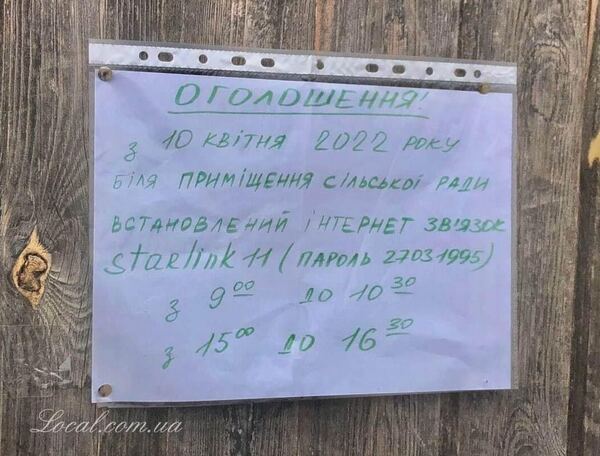 ОГОЛОШЕННЯ!
з 10 КВІТНЯ 2022 РОКУ
БІЛЯ ПРИМІЩЕННЯ СІЛЬСЬКОЇ РАДИ
ВСТАНОВЛЕНИЙ ІНТЕРНЕТ ЗВ'ЯЗОК
starlink 11 (ПАРОЛЬ 27031995)
з 9 00 ДО 10 30
з 15 00 ДО 16 30
Local.com.ua